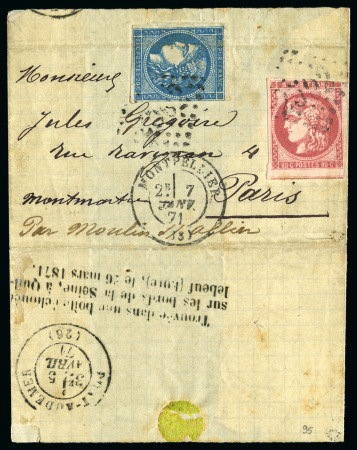 Monsieur
Jules Gregoire
rue
4
montmartre Paris
Par Moulin s/allier
80 C POSTES 80 C
MONTPELLIER
2E 7
JANV.
71
(33)
Trouvée dans une boîte échouée
sur les bords de la Seine, à Quil-
lebeuf (Eure), le 26 mars 1871.
PONT-AUDEMER
5
AVRIL
71
(26)
95